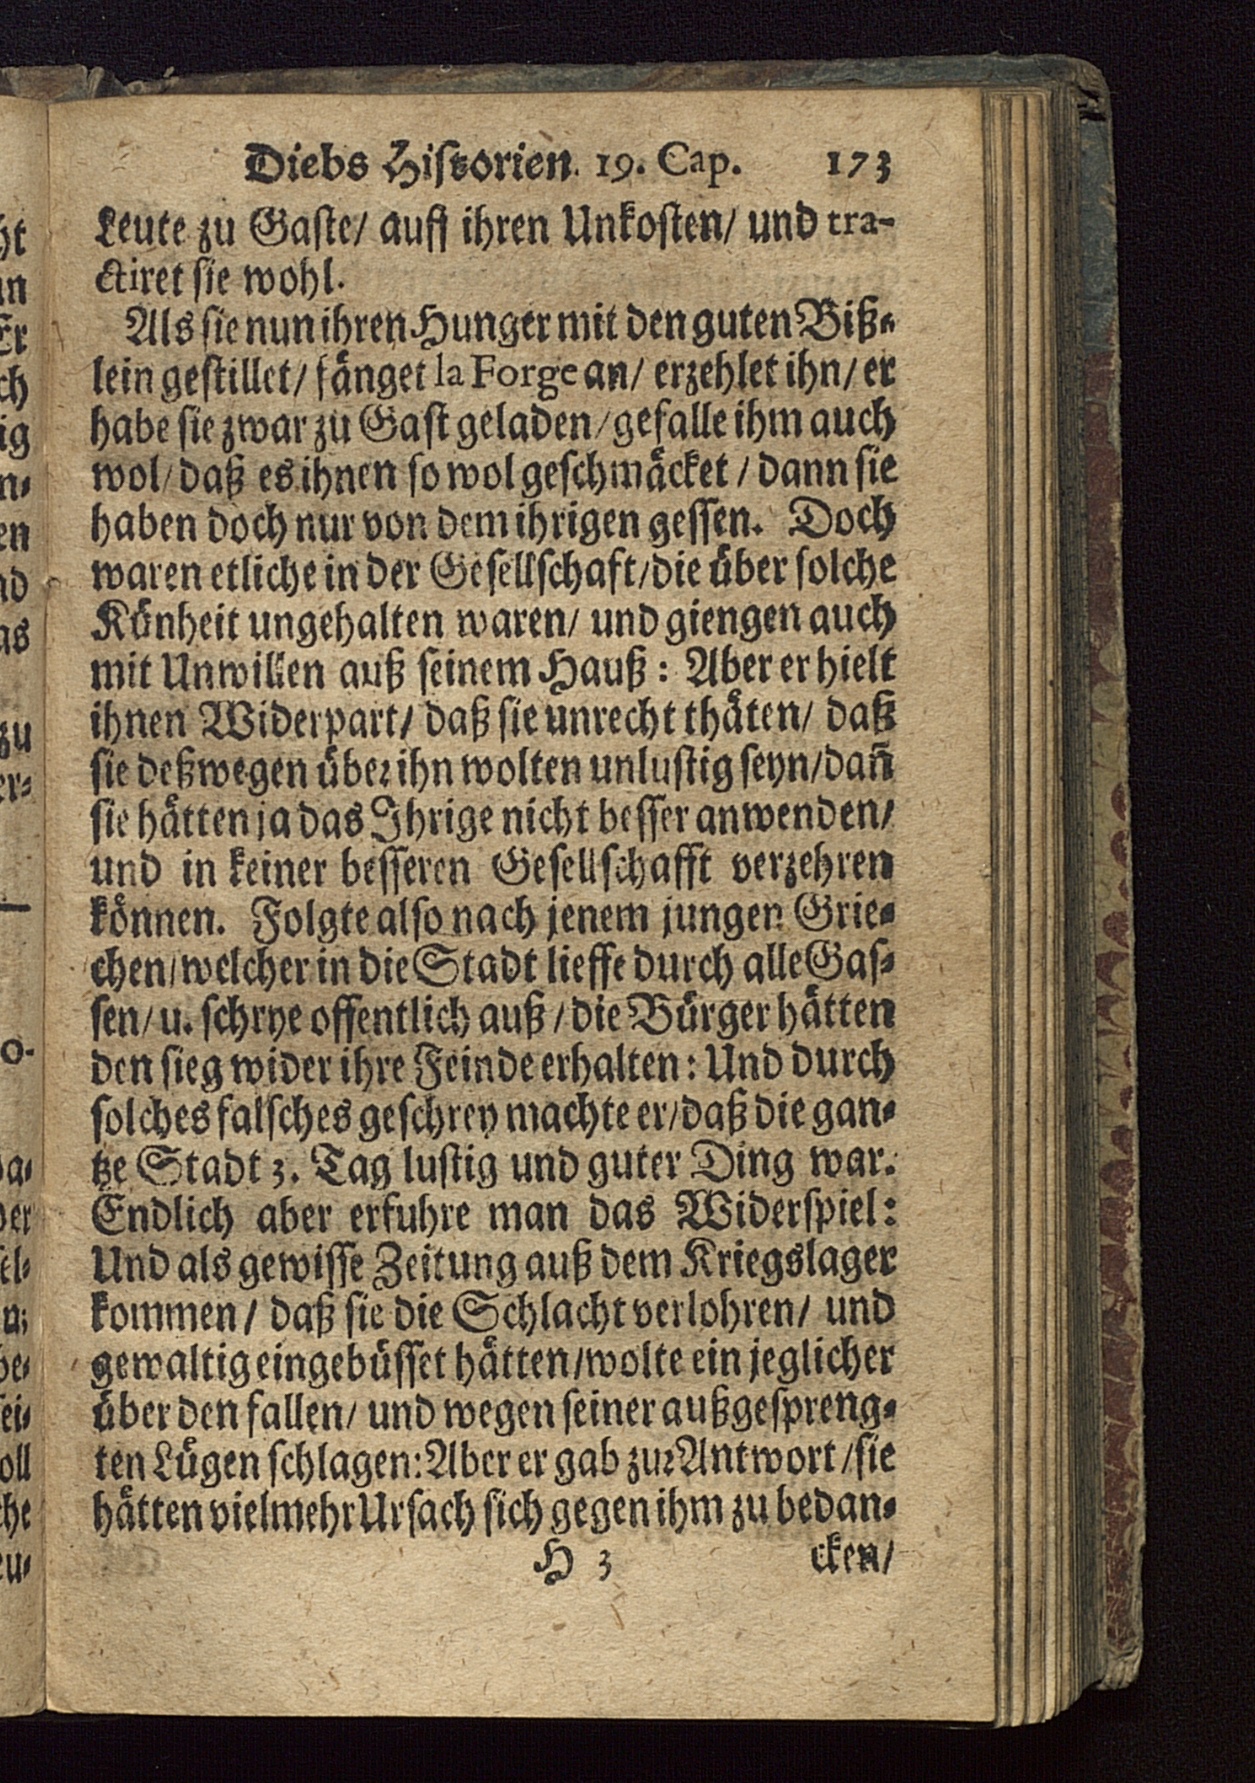 Diebs Historien. 19. Cap. 173
Leute zu Gaste/ auff ihren Unkosten/ und tra-
ctiret sie wohl.
Als sie nun ihren Hunger mit den guten Biß-
lein gestillet/ fänget la Forge an/ erzehlet ihn/ er
habe sie zwar zu Gast geladen/ gefalle ihm auch
wol/ daß es ihnen so wol geschmäcket/ dann sie
haben doch nur von dem ihrigen gessen. Doch
waren etliche in der Gesellschaft/ die über solche
Könheit ungehalten waren/ und giengen auch
mit Unwillen auß seinem Hauß: Aber er hielt
ihnen Widerpart/ daß sie unrecht thäten/ daß
sie deßwegen über ihn wolten unlustig seyn/ dañ
sie hätten ja das Ihrige nicht besser anwenden/
und in keiner besseren Gesellschafft verzehren
können. Folgte also nach jenem jungen Grie-
chen/ welcher in die Stadt lieffe durch alle Gas-
sen/ u. schrye offentlich auß/ die Bürger hätten
den sieg wider ihre Feinde erhalten: Und durch
solches falsches geschrey machte er/ daß die gan-
tze Stadt 3. Tag lustig und guter Ding war.
Endlich aber erfuhre man das Widerspiel:
Und als gewisse Zeitung auß dem Kriegslager
kommen/ daß sie die Schlacht verlohren/ und
gewaltig eingebüsset hätten/ wolte ein jeglicher
über den fallen/ und wegen seiner außgespreng-
ten Lügen schlagen: Aber er gab zur Antwort/ sie
hätten vielmehr Ursach sich gegen ihm zu bedan-
H 3 cken/